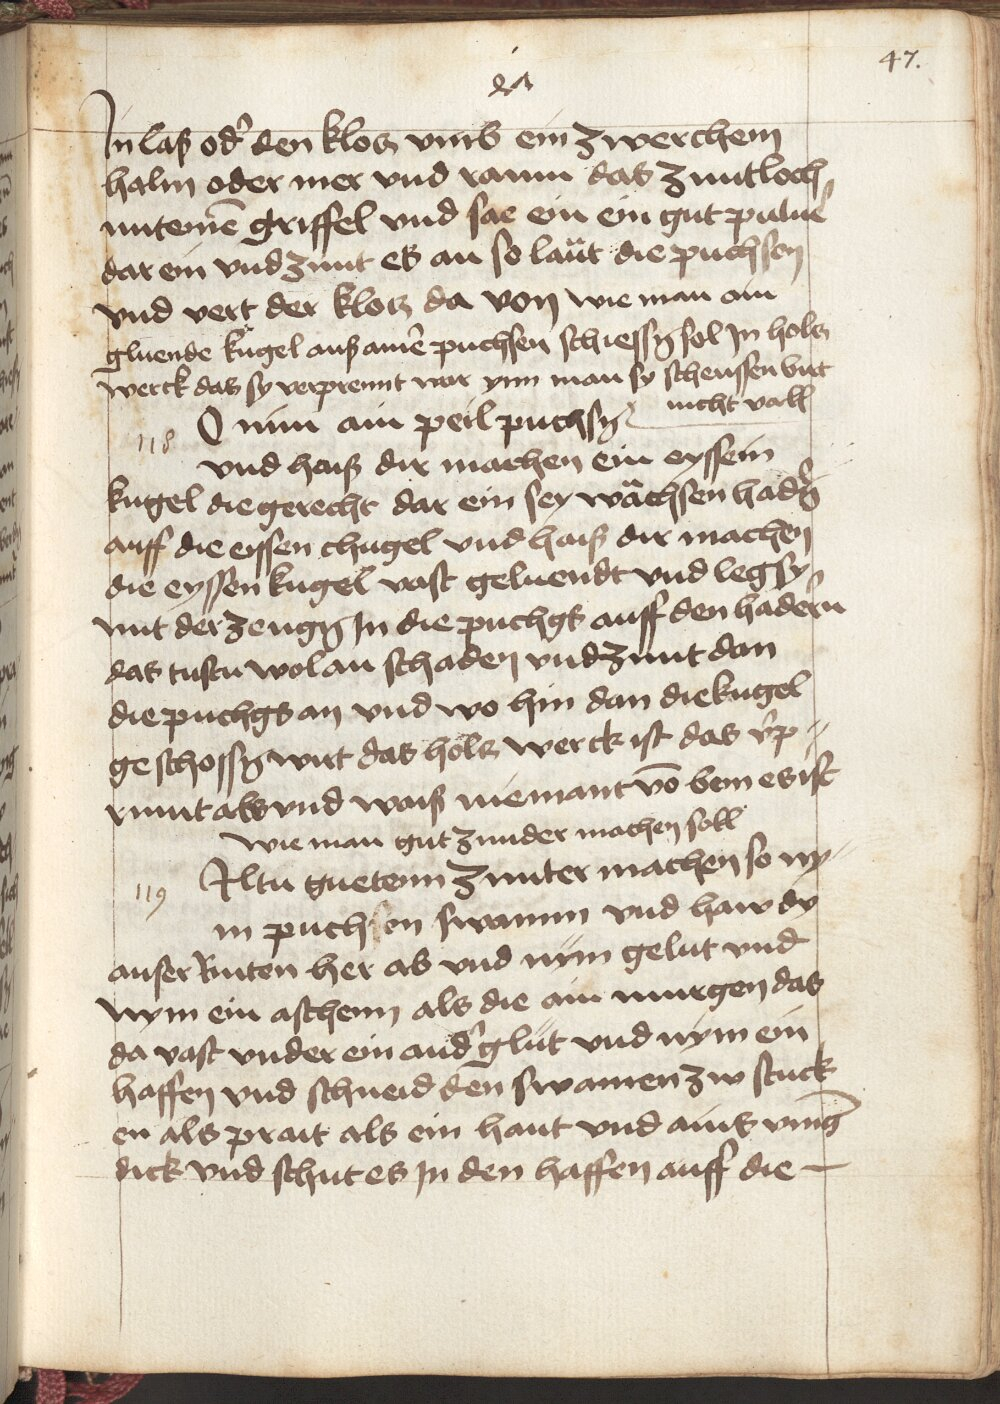 47.
In laß od̕ den klotz vmb ein zwerchem
halm oder mer vnd raum das zuntloch
mit eine̅ griffel vnd sae ein ein gut pulue̕
dar ein vnd zunt es an so laüt die puchsen
vnd vert der klotz da von wie man ain
gluende kugel auß aine̕ puchsen schiessn̄ sol In holtz
werck das sy verprennt war ynn man sy scheussen
nicht vall
O nim ain peil puchsn̄
118
vnd haiß dir machen ein eyssein
kugel die gerecht dar ein sey wächsen hadn̕
auff die eissen chugel vnd haiß dir machen
die eyssen kugel vast geluendt vnd leg sy
mit der zengn̄ In die puchgs auff den hadern
das tustu wol an schaden vnd zunt dan
die puchgs an vnd wo hin dan die kugel
geschossn̄ wirt das holtz werck ist das v̕p
rinnt als vnd waiß niemant vo̅ bem es ist
wie man gut zunder machen soll
119
Iltu guetenn zunter machen so ny
m puchsen swamm vnd haw dy
auser Rinten her ab vnd nÿm gelut vnd
Nym ein aschenn als die ain murgen das
da vast vnder ein and̕ glüt vnd nÿm ein
haffen vnd schneid den swamen zw stuck
en als prait als ein hant vnd ains ving̕
dick vnd schut es In den haffen auff die